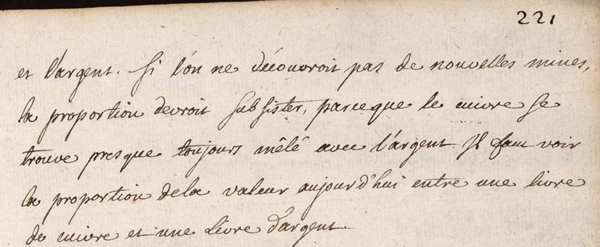 221
et l'argent. Si l'on ne découvroit pas de nouvelles mines,
la proportion devroit subsister, parceque le cuivre se
trouve presque toujours mêlé avec l'argent. Il faut voir
la proportion dela valeur aujourd'hui entre une livre
de cuivre et une livre d'argent.